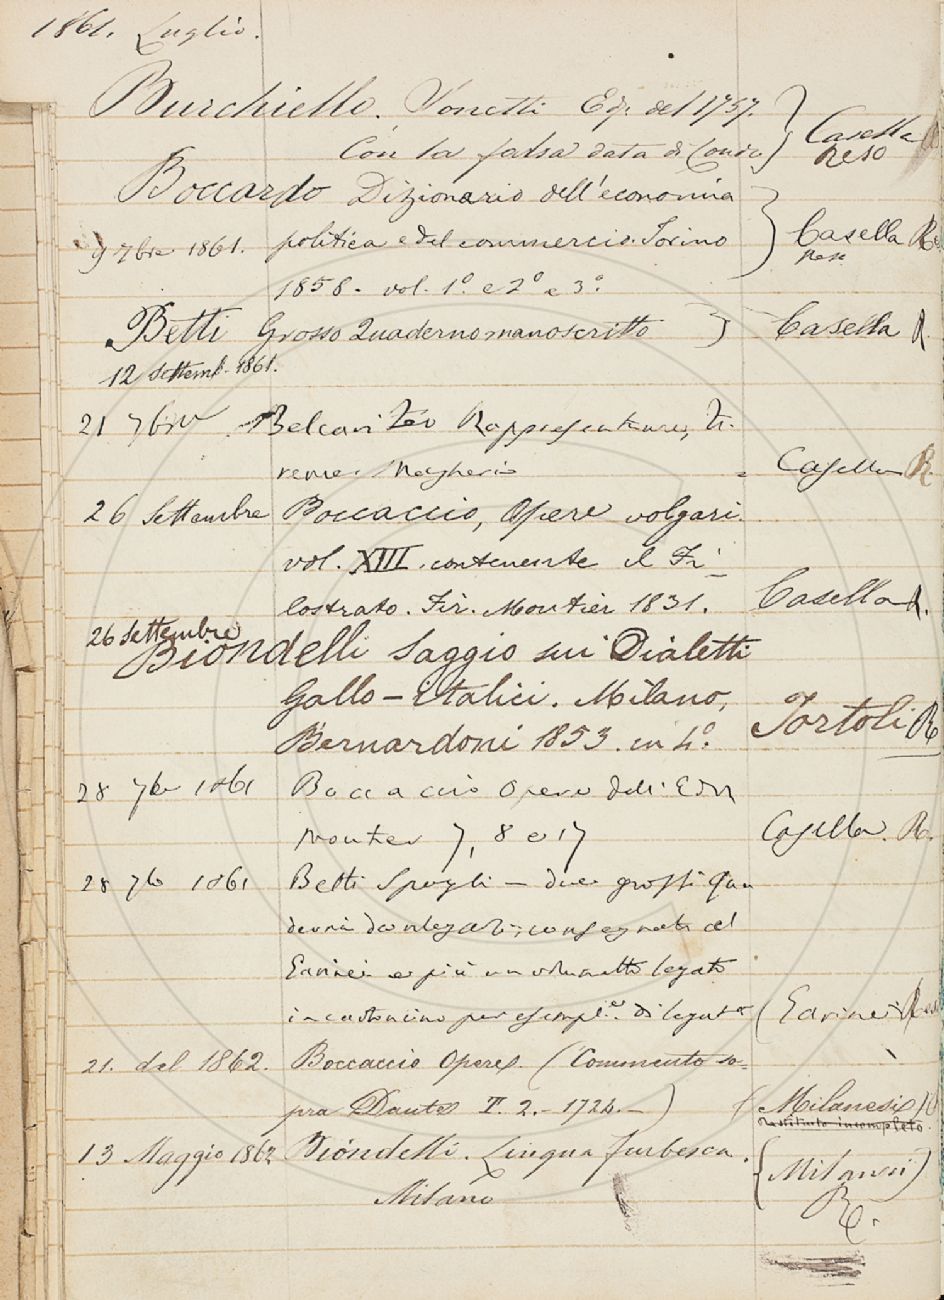 1861. Luglio.
Burchiello. Sonetti Ediz. del 1757.
Con la falsa data di Londra Casella
reso
Boccardo Dizionario dell'economia
9 7bre 1861. politica e del commercio. Torino Casella Re
reso
1858. vol. 1º e 2º e 3º
Betti Grosso Quaderno manoscritto Casella R.
12 Settemb. 1861.
21 7bre Belcari Feo Rappresentazioni, Fi-
renze Magheri = Casella R.
26 Settembre Boccaccio, Opere volgari
vol. XIII. contenente il Fi-
lostrato. Fir. Moutier 1831. Casella R.
26 Settembre
Biondelli Saggio sui Dialetti
Gallo-Italici. Milano,
Bernardoni 1853. in 4º. Tortoli R
28 7br 1861 Boccaccio Opere dell' Ediz
Moutier 7, 8 e 17 Casella. R.
28 7b 1861 Betti Spogli — due grossi Qua
derni da legarsi, consegnati al
e più un volumetto legato
in cartoncino per esempl.e di legatª (
21. del 1862. Boccaccio Opere. (Commento so-
pra Dante T. 2. - 1724. - ) (Milanesi) R
Restituito incompleto.
13 Maggio 1862 Biondelli. Lingua furbesca. (Milanesi)
Milano R.